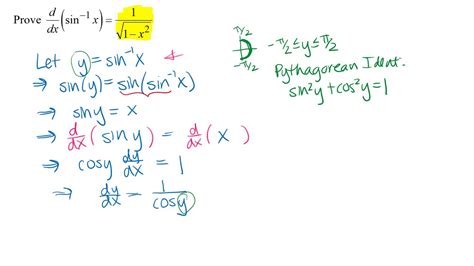 Prove d/dx (sin⁻¹ x) = 1/√(1−x²)
Let y = sin⁻¹x
⇒ sin(y) = sin(sin⁻¹x)
⇒ sin y = x
⇒ d/dx (sin y) = d/dx (x)
⇒ cos y dy/dx = 1
⇒ dy/dx = 1/cos y
π/2
-π/2
-π/2 ≤ y ≤ π/2
Pythagorean Ident.
sin²y + cos²y = 1